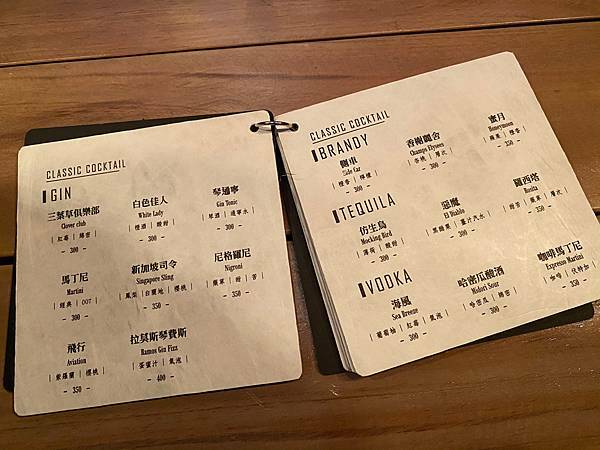 CLASSIC COCKTAIL
GIN
三葉草俱樂部
Clover club
| 紅莓 | 綿密 |
- 300 -
白色佳人
White Lady
| 橙酒 | 酸甜 |
- 300 -
琴通寧
Gin Tonic
| 琴酒 | 通寧水 |
- 300 -
馬丁尼
Martini
| 經典 | 007 |
- 300 -
新加坡司令
Singapore Sling
| 鳳梨 | 白蘭地 | 櫻桃 |
- 350 -
尼格羅尼
Nigroni
| 藥草 | 甜 | 苦 |
- 300 -
飛行
Aviation
| 紫羅蘭 | 櫻桃 |
- 350 -
拉莫斯琴費斯
Ramos Gin Fizz
| 蛋蜜汁 | 氣泡 |
- 400 -
CLASSIC COCKTAIL
BRANDY
側車
Side Car
| 橙香 | 檸檬 |
- 300 -
香榭麗舍
Champs Elysees
| 杏桃 | 層次 |
- 300 -
蜜月
Honeymoon
| 蘋果 | 橙香 |
- 350 -
TEQUILA
仿生鳥
Mocking Bird
| 薄荷 | 酸甜 |
- 300 -
惡魔
El Diablo
| 黑醋栗 | 薑汁汽水 |
- 300 -
羅西塔
Rosita
| 甜苦 | 藥草 | 層次 |
- 350 -
VODKA
海風
Sea Breeze
| 葡萄柚 | 紅莓 | 氣泡 |
- 300 -
哈密瓜酸酒
Midori Sour
| 哈密瓜 | 綿密 |
- 300 -
咖啡馬丁尼
Expresso Martini
| 咖啡 | 伏特加 |
- 350 -